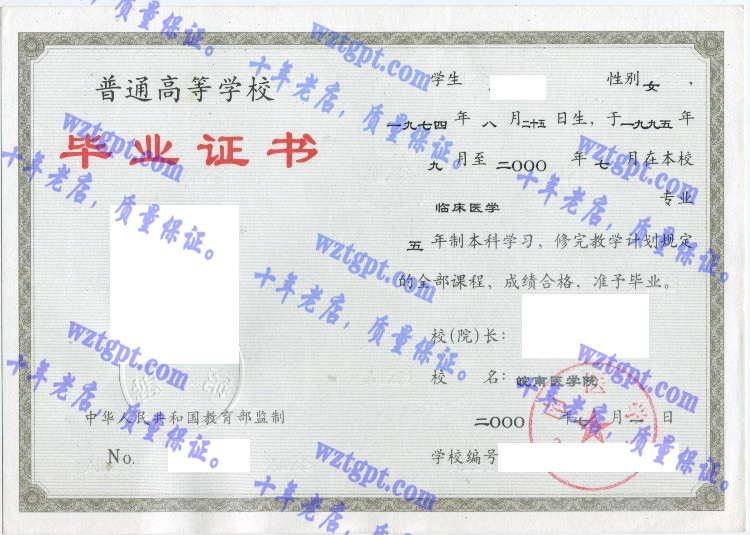 普通高等学校
毕业证书
中华人民共和国教育部监制
No.
学生 性别女,
一九七四年八月二十五日生,于一九九五年
九月至二〇〇〇年七月在本校
临床医学 专业
五年制本科学习,修完教学计划规定
的全部课程,成绩合格,准予毕业。
校(院)长:
校 名:皖南医学院
二〇〇〇年七月一日
学校编号
wztgpt.com
十年老店,质量保证。
wztgpt.com
十年老店,质量保证。
wztgpt.com
十年老店,质量保证。
wztgpt.com
十年老店,质量保证。
wztgpt.com
十年老店,质量保证。
wztgpt.com
十年老店,质量保证。
wztgpt.com
十年老店,质量保证。